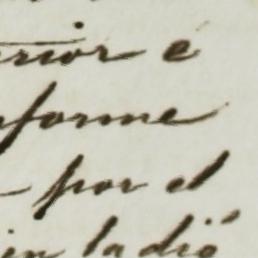 rior e
nforme
por el
in ladió